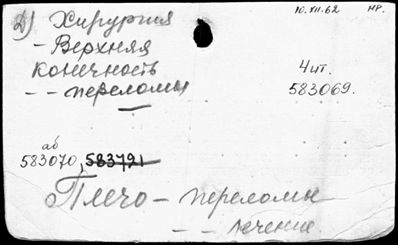 Д) Хирургия 10.XII.62 НР.
- Верхняя
конечность Чит.
- - переломы 583069.
аб
583070, 583791
Плечо - переломы
- - лечение.